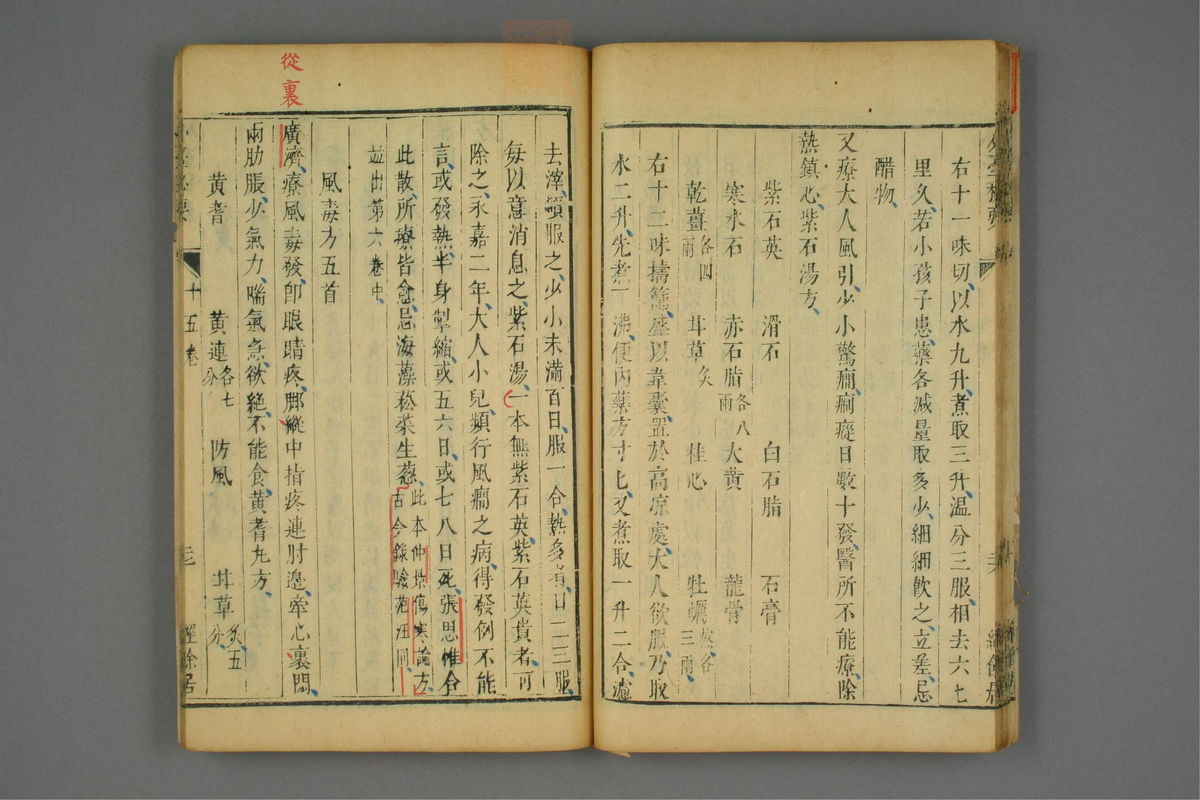 右十一味切以水九升煮取三升温分三服相去六七
里久若小孩子患藥各減量取多少細細飲之立差忌
醋物
又療大人風引少小驚癇瘈瘲日數十發醫所不能療除
熱鎮心紫石湯方
紫石英 滑石 白石脂 石膏
寒水石 赤石脂各八兩 大黄 龍骨
乾薑各四兩 甘草炙 桂心 牡蠣熬各三兩
右十二味擣篩盛以韋囊置於高凉處大人欲服乃取
水二升先煮一沸便内藥方寸匕又煮取一升二合濾
去滓頓服之少小未滿百日服一合熱多者日二三服
每以意消息之紫石湯一本無紫石英紫石英貴者可
除之永嘉二年大人小兒頻行風癇之病得發例不能
言或發熱半身掣縮或五六日或七八日死張思惟合
此散所療皆愈忌海藻菘菜生葱此本仲景傷寒論方古今錄驗范汪同
並出第六卷中
風毒方五首
從裏
廣濟療風毒發卽眼睛疼脚縱中指疼連肘邊牽心裏悶
兩肋脹少氣力喘氣急欲絶不能食黄耆丸方
黄耆 黄連各七分 防風 甘草炙五分
十五卷
經餘居